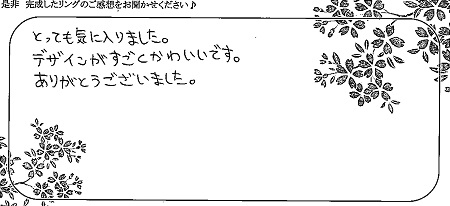 是非 完成したリングのご感想をお聞かせください♪
とっても気に入りました。
デザインがすごくかわいいです。
ありがとうございました。